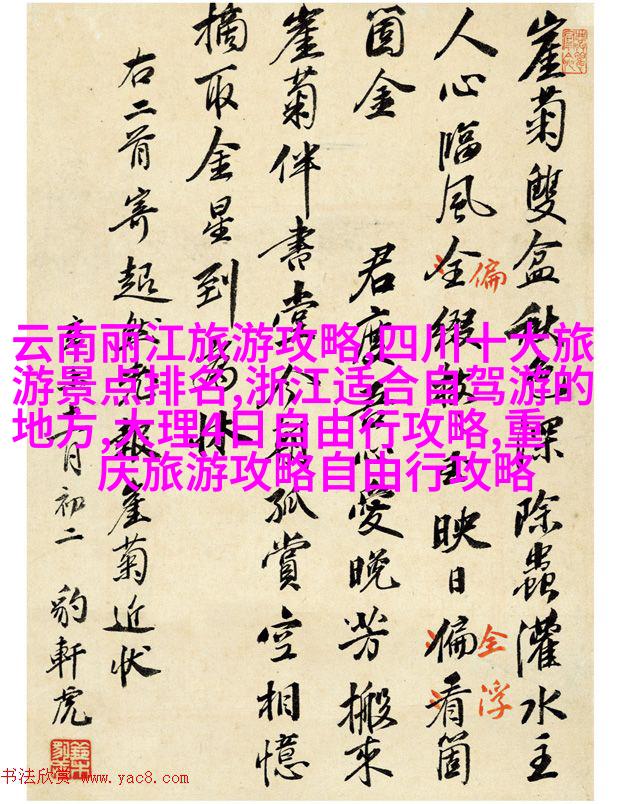 崖菊雙盆秋色深除蟲灌水主
人心臨風全綴映日偏看箇
偏
全
浮
箇金
君愛晚芳搬來
崖菊伴書堂孤賞空相憶
摘取金星到休
右二首寄超然報崖菊近狀
月初二 豹軒虎
云南丽江旅游攻略,四川十大旅
游景点排名,浙江适合自驾游的
地方,大理4日自由行攻略,重
庆旅游攻略自由行攻略
书法欣赏 www.yac8.com